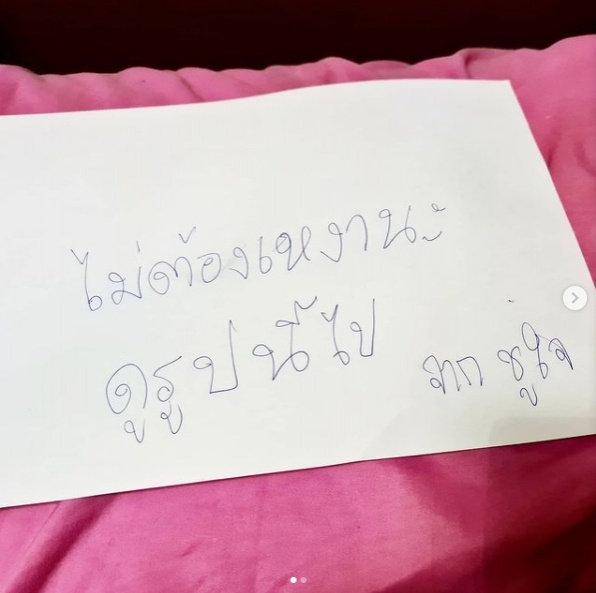 ไม่ต้องเหงานะ
ดูรูปนี้ไป
จาก ชูใจ